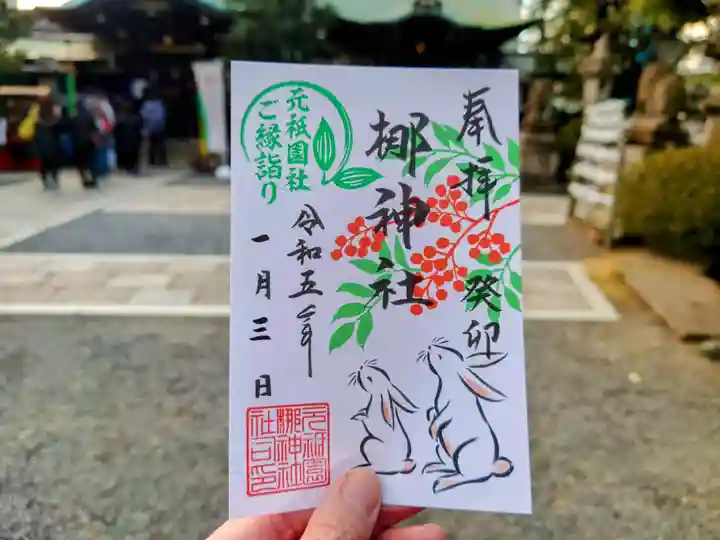 奉拝 癸卯
梛神社
元祇園社
ご縁詣り
令和五年
一月三日
元祇園
梛神社
社司印